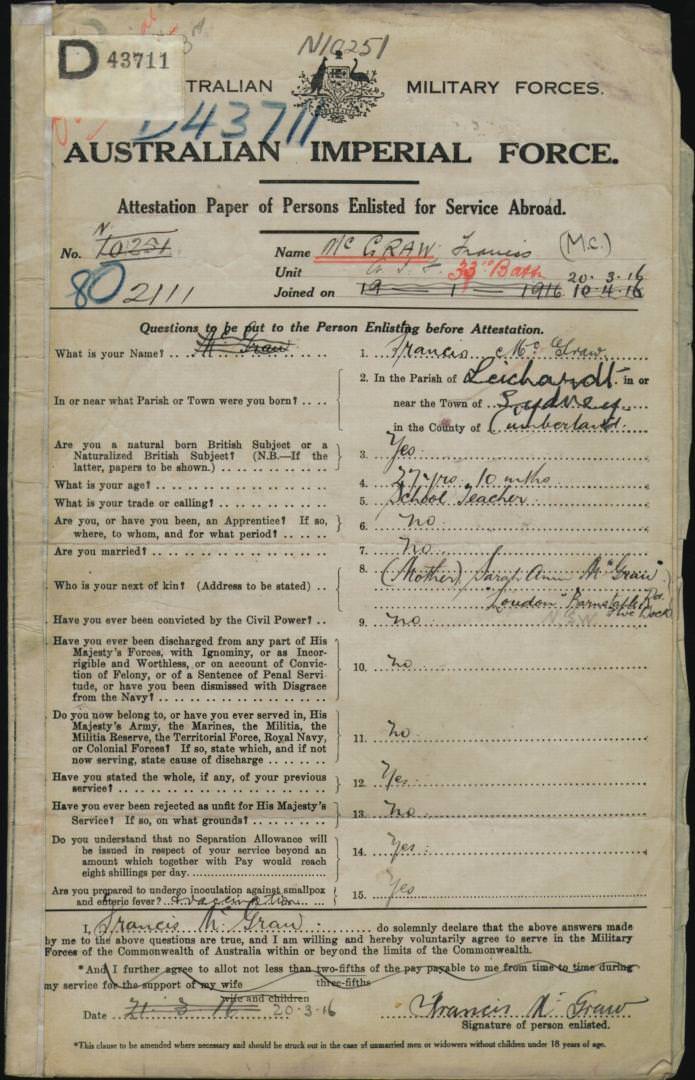 N10251
D 43711
TRALIAN MILITARY FORCES.
D43711
AUSTRALIAN IMPERIAL FORCE.
Attestation Paper of Persons Enlisted for Service Abroad.
No. N 10251 Name McGRAW, Francis (M.C.)
Unit A.I.F. 33rd Battn 20-3-16
80 2111 Joined on 19 1 1916 10-4-16
Questions to be put to the Person Enlisting before Attestation.
What is your Name? Mc Graw 1. Francis McGraw
In or near what Parish or Town were you born? 2. In the Parish of Leichardt in or
near the Town of Sydney
in the County of Cumberland
Are you a natural born British Subject or a
Naturalized British Subject? (N.B.—If the
latter, papers to be shown.) 3. Yes
What is your age? 4. 27 yrs. 10 mths
What is your trade or calling? 5. School Teacher
Are you, or have you been, an Apprentice? If so,
where, to whom, and for what period? 6. no
Are you married? 7. no
Who is your next of kin? (Address to be stated) 8. (Mother) Sarah Ann McGraw
"Loudon" Barnstaple Rd.
Five Dock
N.S.W.
Have you ever been convicted by the Civil Power? 9. no
Have you ever been discharged from any part of His
Majesty's Forces, with Ignominy, or as Incor-
rigible and Worthless, or on account of Convic-
tion of Felony, or of a Sentence of Penal Servi-
tude, or have you been dismissed with Disgrace
from the Navy? 10. no
Do you now belong to, or have you ever served in, His
Majesty's Army, the Marines, the Militia, the
Militia Reserve, the Territorial Force, Royal Navy,
or Colonial Forces? If so, state which, and if not
now serving, state cause of discharge 11. no
Have you stated the whole, if any, of your previous
service? 12. Yes
Have you ever been rejected as unfit for His Majesty's
Service? If so, on what grounds? 13. no
Do you understand that no Separation Allowance will
be issued in respect of your service beyond an
amount which together with Pay would reach
eight shillings per day. 14. Yes
Are you prepared to undergo inoculation against smallpox
and enteric fever? & vaccination 15. Yes
I, Francis McGraw do solemnly declare that the above answers made
by me to the above questions are true, and I am willing and hereby voluntarily agree to serve in the Military
Forces of the Commonwealth of Australia within or beyond the limits of the Commonwealth.
*And I further agree to allot not less than two-fifths of the pay payable to me from time to time during
three-fifths
my service for the support of my wife
wife and children
Date 21-3-16 20-3-16 Francis McGraw
Signature of person enlisted.
*This clause to be amended where necessary and should be struck out in the case of unmarried men or widowers without children under 18 years of age.